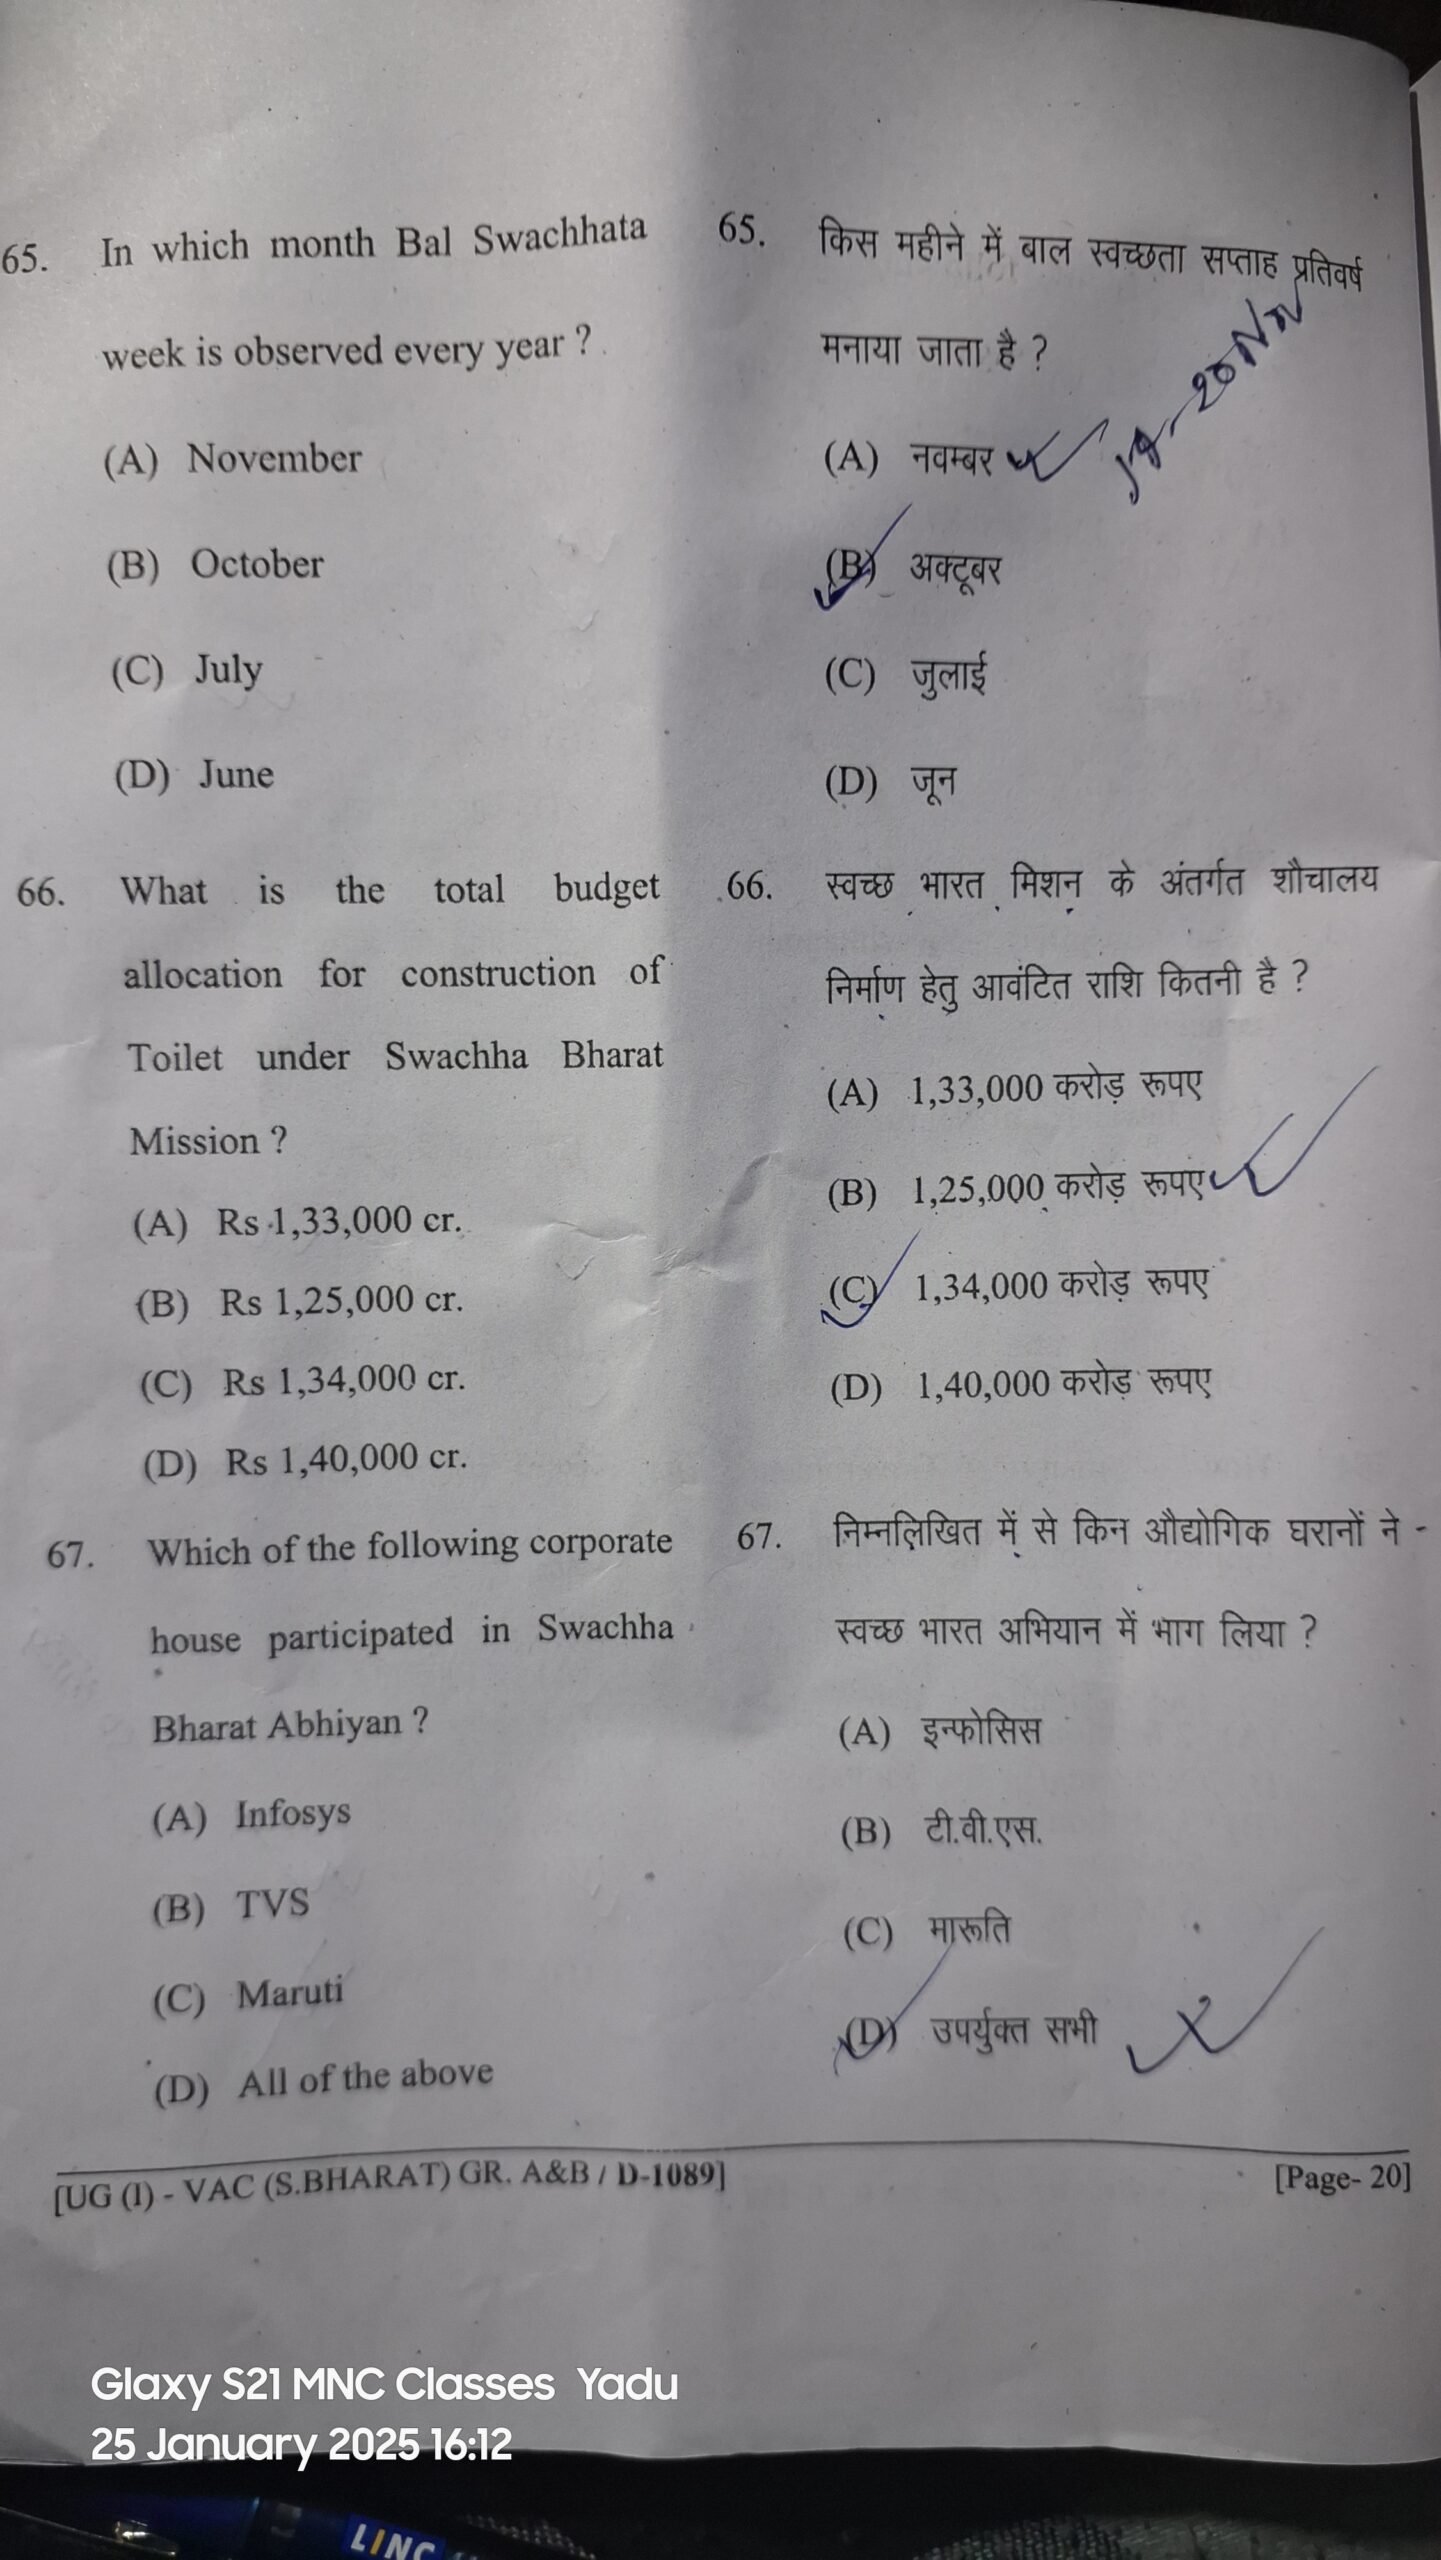 65. In which month Bal Swachhata
week is observed every year ?
(A) November
(B) October
(C) July
(D) June
66. What is the total budget
allocation for construction of
Toilet under Swachha Bharat
Mission ?
(A) Rs 1,33,000 cr.
(B) Rs 1,25,000 cr.
(C) Rs 1,34,000 cr.
(D) Rs 1,40,000 cr.
67. Which of the following corporate
house participated in Swachha
Bharat Abhiyan ?
(A) Infosys
(B) TVS
(C) Maruti
(D) All of the above
65. किस महीने में बाल स्वच्छता सप्ताह प्रतिवर्ष
मनाया जाता है ?
(A) नवम्बर
(B) अक्टूबर
(C) जुलाई
(D) जून
66. स्वच्छ भारत मिशन के अंतर्गत शौचालय
निर्माण हेतु आवंटित राशि कितनी है ?
(A) 1,33,000 करोड़ रूपए
(B) 1,25,000 करोड़ रूपए
(C) 1,34,000 करोड़ रूपए
(D) 1,40,000 करोड़ रूपए
67. निम्नलिखित में से किन औद्योगिक घरानों ने -
स्वच्छ भारत अभियान में भाग लिया ?
(A) इन्फोसिस
(B) टी.वी.एस.
(C) मारूति
(D) उपर्युक्त सभी
[UG (I) - VAC (S.BHARAT) GR. A&B / D-1089]
[Page- 20]
Glaxy S21 MNC Classes Yadu
25 January 2025 16:12
LINC